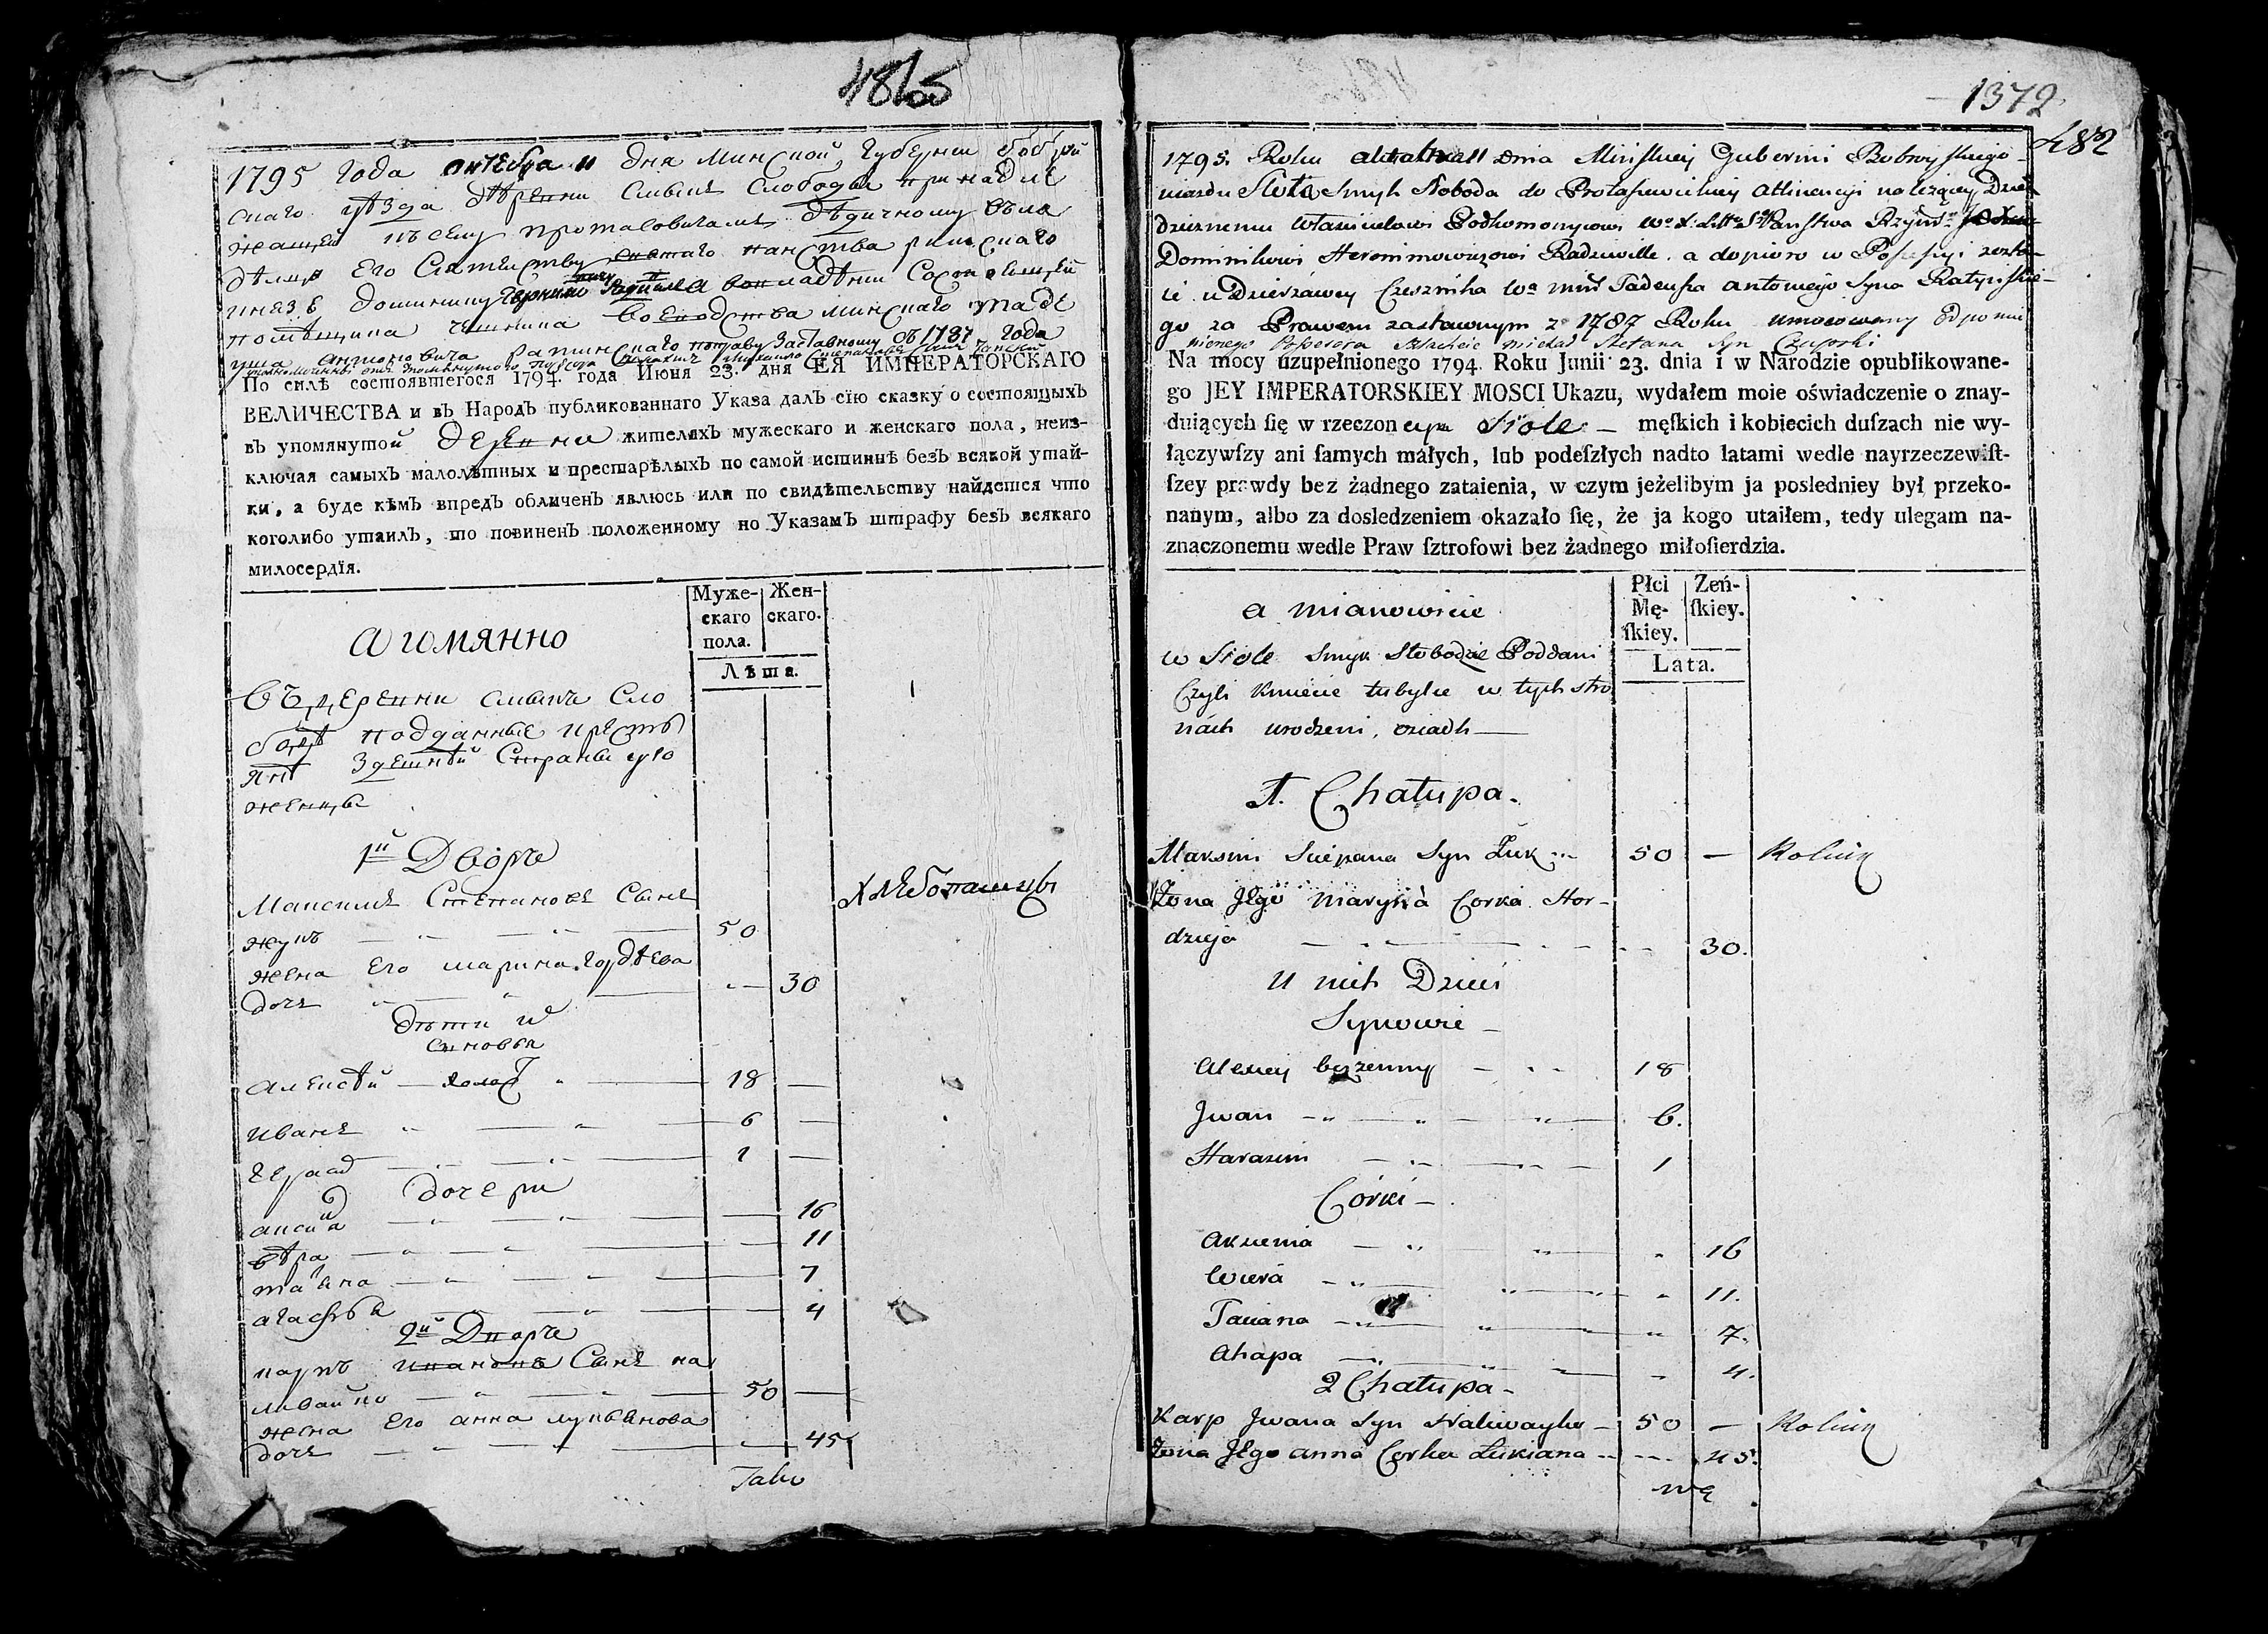 1372
482
1795 года октебра 11 дня Минской Губернии бобруй
скаго уѣзда дѣревни Смыкъ Слободы принадле
жащей къ селу протасовичамъ дѣдичному Вла
дѣлцу Его Сіятелству панства римскаго
князъ доминику Радивила во владѣнии Состоящей
помѣщика чешника воеводства минскаго фаде
уша антоновича ратинскаго поправу заставному съ 1787 года
По силѣ состоявшегося 1794. года Июня 23. дня ЕЯ ИМПЕРАТОРСКАГО
ВЕЛИЧЕСТВА и въ Народъ публикованнаго Указа далъ сїю сказку о состоящыхъ
въ упомянутой деревни жителяхъ мужескаго и женскаго пола, неиз-
ключая самыхъ малолѣтных и престарѣлыхъ по самой истиннѣ безъ всякой утай-
ки, а буде кѣмъ впредъ обличенъ явлюсь или по свидѣтельству найдется что
коголибо утаилъ, то повиненъ положенному по Указамъ штрафу безъ всякаго
милосердїя.
Муже-
скаго
пола.
Жен-
скаго.
Лѣта.
А имянно
Въ деревни смыкъ Сло
бодѣ подданные кресть
янѣ здешнѣй Страны уро
женцы
1й Дворъ
Максимъ Степановъ Сынъ
жукъ 50 Хлебопашецъ
жена Его марина гордѣева
дочъ 30
дѣти их
сыновья
алексѣй холост 18
иванъ 6
гераси 1
дочери
аксиня 16
вѣра 11
татьяна 7
агафья 4
2й Дворъ
карпъ ивановъ Сынъ на
ливайко 50
жена Его анна лукьянова
дочъ 45
Tako
1795. Roku 11 dnia Minskiey Gubernii Bobruyskiego
uiazdu Sioła Smyk Słoboda do Protasewickiey attinencyi należącey Dzie
dzicznemu Własicielowi Podkomorzycowi
Dominikowi Heronimowiczowi Radziwille. a dopiero w Possessyi zosta-
ie u Dzierżawcy Czesznika Wa minſ Tadeusza antoniego Syna Ratyńskie-
go za Prawem zastawnym z 1787 Roku umocowany od pomie
nionego Possessora Szlachcic Michał Stefana Syn
Na mocy uzupełnionego 1794. Roku Junii 23. dnia i w Narodzie opublikowane-
go JEY IMPERATORSKIEY MOSCI Ukazu, wydałem moie oświadczenie o znay-
duiących ſię w rzeczon Siole męſkich i kobiecich duſzach nie wy-
łączywſzy ani ſamych małych, lub podeſzłych nadto latami wedle nayrzeczewiſt-
ſzey prawdy bez żadnego zataienia, w czym jeżelibym ja posledniey był przeko-
nanym, albo za dosledzeniem okazało ſię, że ja kogo utaiłem, tedy ulegam na-
znaczonemu wedle Praw ſztrofowi bez żadnego miłoſierdzia.
Płci
Mę-
ſkiey.
Zeń-
ſkiey.
Lata.
a mianowicie
w Siole Smyk Słobodzie Poddani
Czyli Kmiecie tubylce w tych stro
nách urodzeni, osiadli
1. Chałupa.
Maksim Sciepana Syn Żuk 50 — Rolnik
Żona Jego Marysia Corka Hor-
dzieja 30.
U nich Dzieci
Synowie
Alexiey bezzenny 18
Jwan 6.
Harasim 1
Córki
Axienia 16
Wiera 11.
Taciana 7.
Ahapa 4.
2 Chałupa
Karp Jwana Syn Naliwayko 50 — Rolnik
Żona Jego anna Corka Łukiana 45.